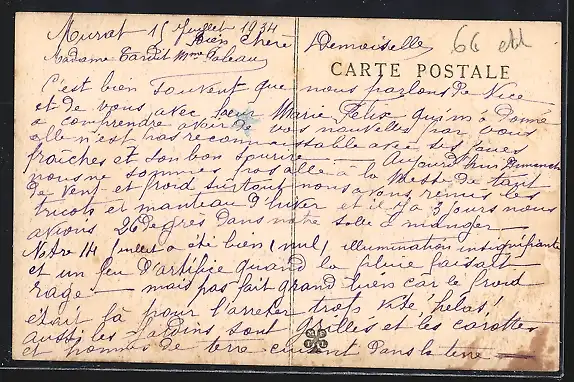 Murat 15 Juillet 1934
Bien Chère Demoiselle
66 
Madame Tardit Mme
CARTE POSTALE
C'est bien souvent que nous parlons de Nice
et de vous avec Sœur Marie Felix qui m'a donné
a comprendre avoir de vos nouvelles par vous
elle n'est pas reconnaissable avec ses joues
fraiches et son bon sourire — Aujourd'hui Dimanche
nous ne sommes pas allé a la Messe de tant
de vent et froid surtout nous avons remis les
tricots et manteau d'hiver et il y a 3 jours nous
avions 26 degrés dans notre salle a manger —
Notre 14 Juillet a été bien (nul) illumination insignifiante
et un feu d'artifice quand la pluie faisait
rage — mais pas fait grand bien car le froid
etait là pour l'arreter trop vite hélas!
aussi les Jardins sont grillés et les carottes
et pommes de terre cuisent dans la terre —